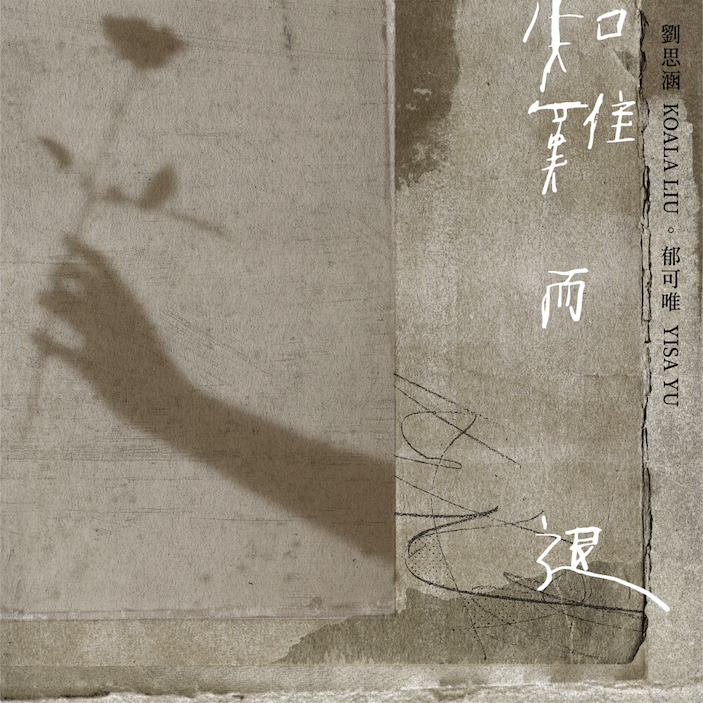 知難而退
劉思涵 KOALA LIU。郁可唯 YISA YU